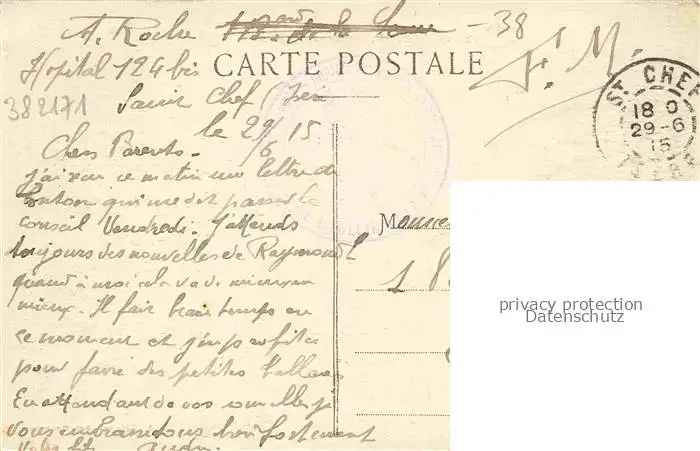 A. Roche
Hopital 124 bis
- 38
F. M.
CARTE POSTALE
Saint Chef (Isère
382171
le 29/6 15
ST CHEF
18 0
29-6
15
Chers Parents -
j'ai reçu ce matin une lettre de
tonton qui me dit passer le
conseil Vendredi. J'attends
toujours des nouvelles de Raymond
quand à moi cela va de mieux en
mieux. Il fait beau temps en
ce moment et j'en profite
pour faire des petites ballades
En attendant de vos nouvelles je
vous embrasse tous bien fortement
Votre fils
Monsieur
privacy protection
Datenschutz